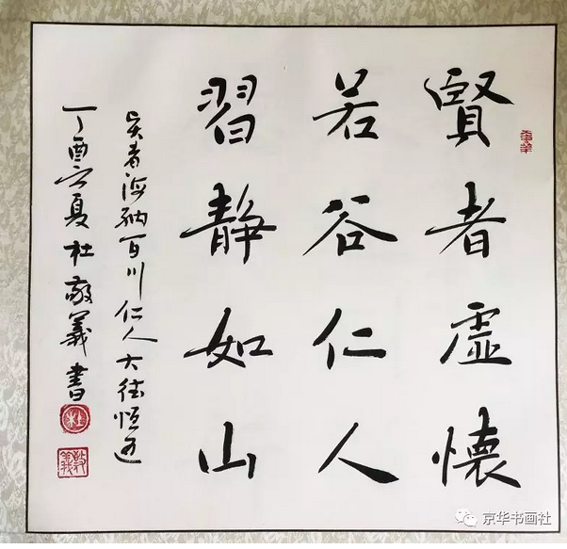 賢者虚懷
若谷仁人
習静如山
者海納百川仁人大德恒
丁酉夏杜敬義書
杜
京华书画社